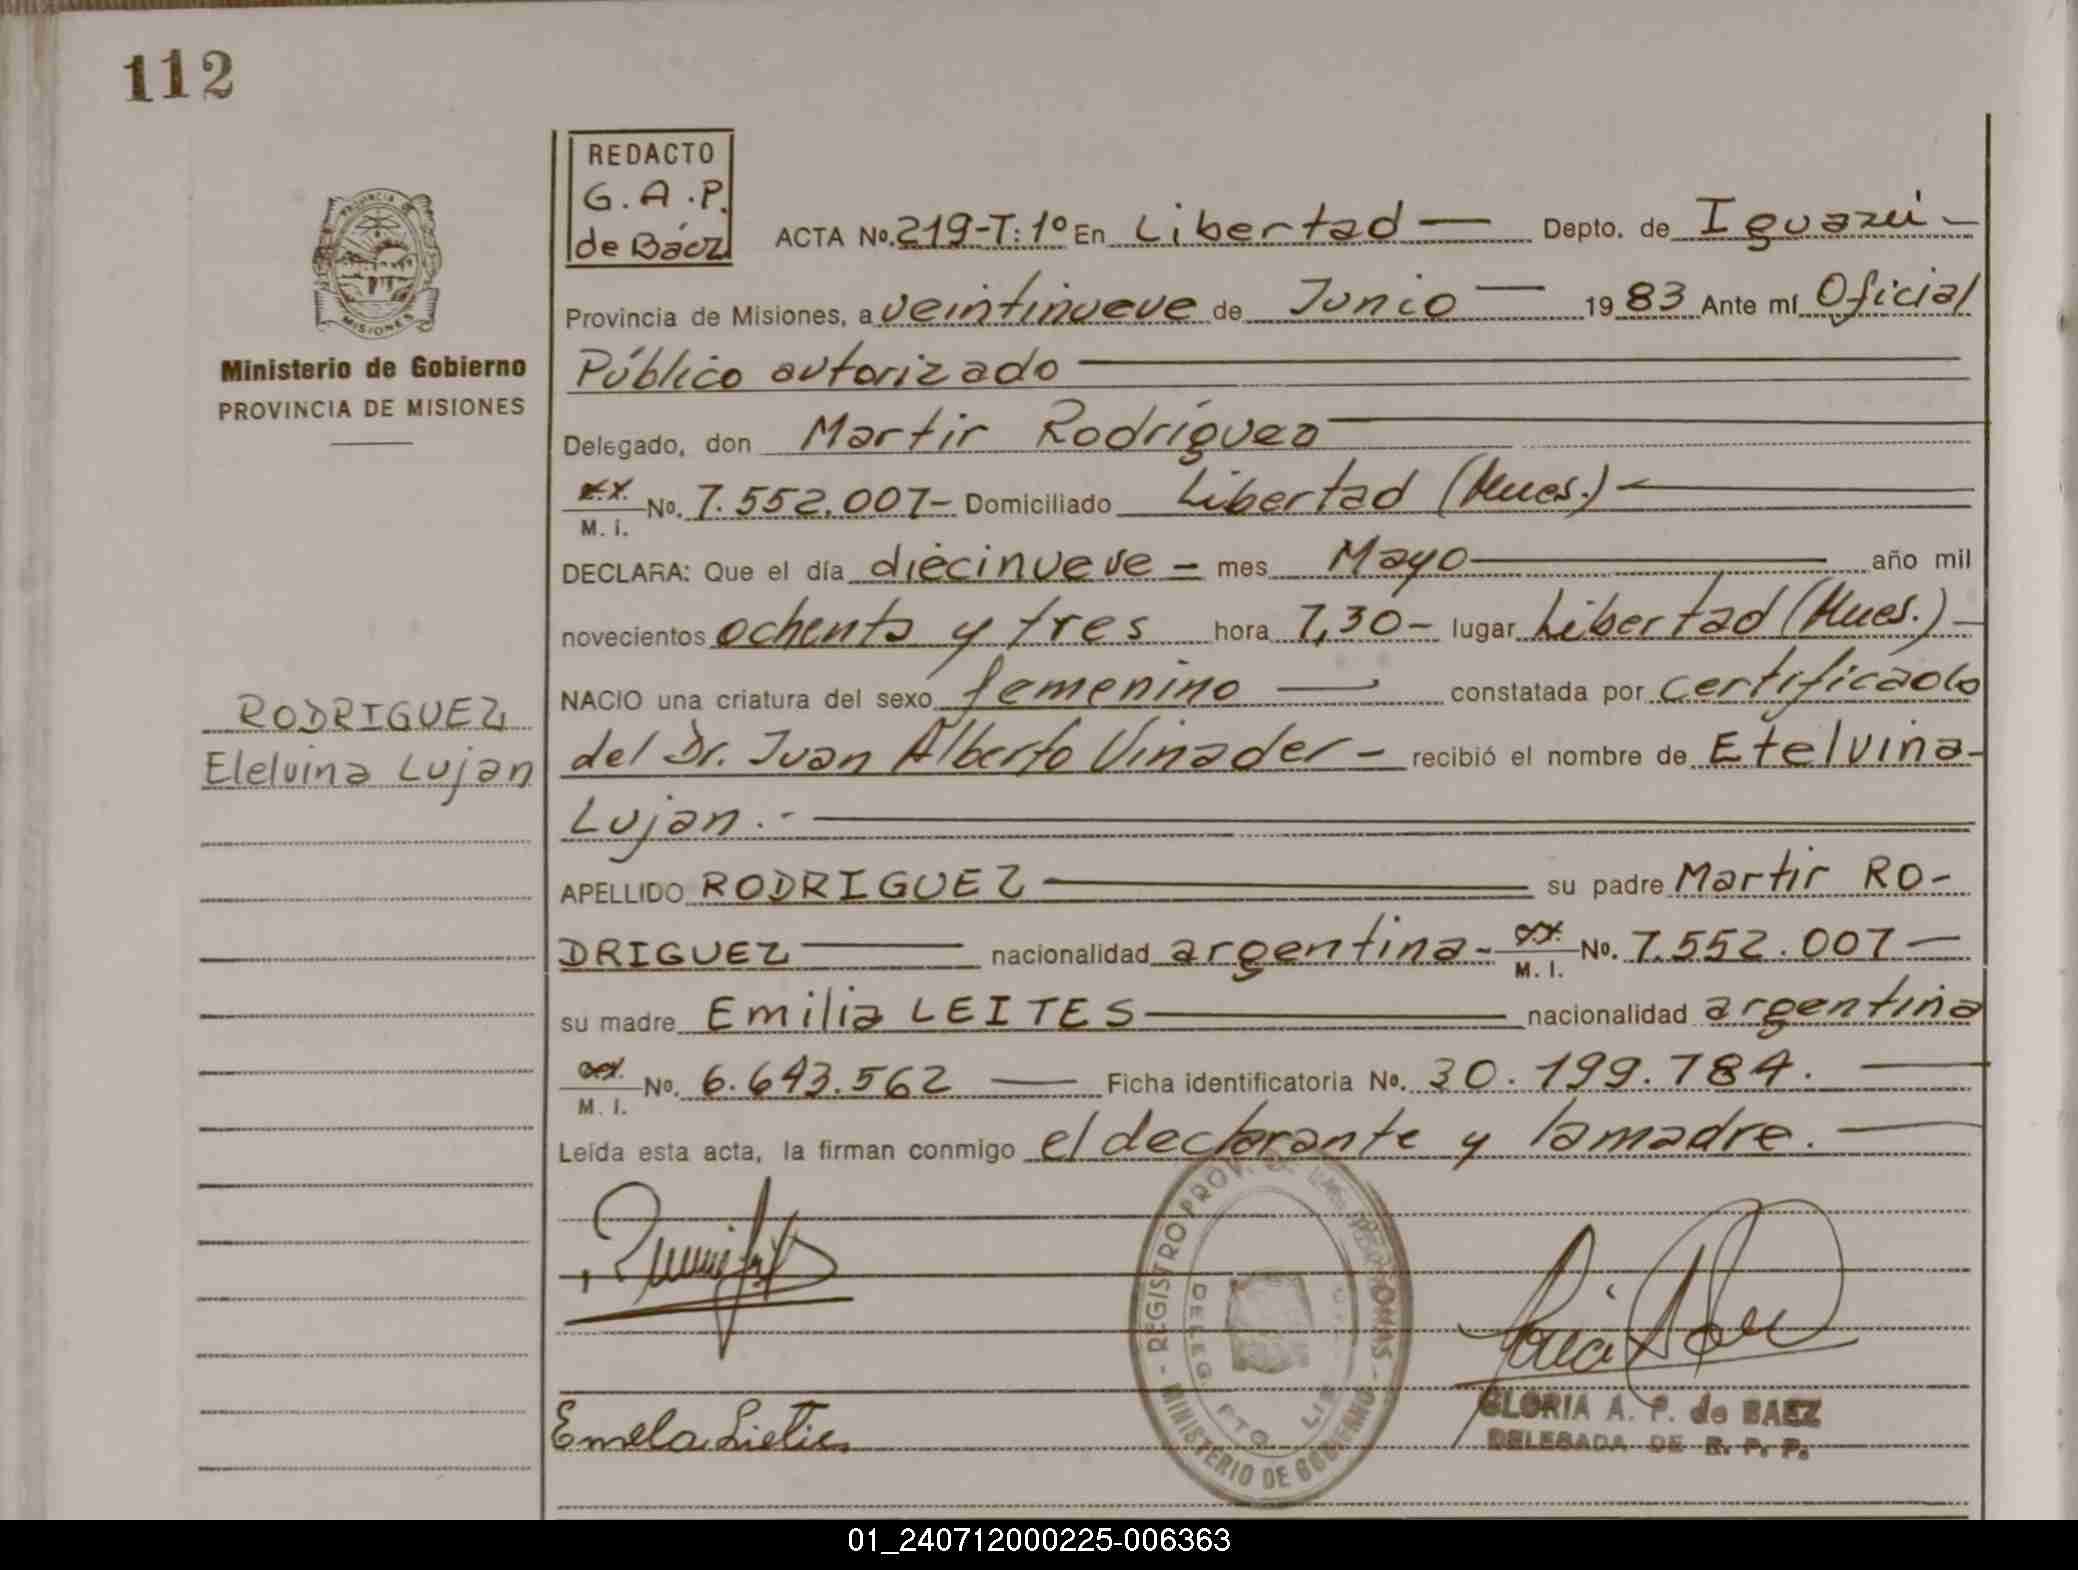 112
REDACTO
G. A. P.
de Báez
PROVINCIA DE
MISIONES
Ministerio de Gobierno
PROVINCIA DE MISIONES
ACTA No. 219-T: 1º En Libertad — Depto. de Iguazú —
Provincia de Misiones, a veintinueve de Junio — 1983 Ante mí Oficial
Público autorizado
Delegado, don Martir Rodríguez
M. I. No. 7.552.007- Domiciliado Libertad (Mnes.) -
DECLARA: Que el día diecinueve - mes Mayo — año mil
novecientos ochenta y tres hora 7,30- lugar Libertad (Mnes.) -
NACIO una criatura del sexo femenino — constatada por certificado
RODRIGUEZ
Elelvina Lujan
del Dr. Juan Alberto Vinader - recibió el nombre de Etelvina-
Lujan.-
APELLIDO RODRIGUEZ — su padre Martir RO-
DRIGUEZ — nacionalidad argentina- M. I. No. 7.552.007 —
su madre Emilia LEITES — nacionalidad argentina
M. I. No. 6.643.562 — Ficha identificatoria No. 30.199.784. —
Leída esta acta, la firman conmigo el declarante y la madre. —
REGISTRO PROV. DE LAS PERSONAS
DELEG.
PTO. LIB
MINISTERIO DE GOBIERNO
GLORIA A. P. de BAEZ
DELEGADA DE R. P. P.
Emela Lietes
01_240712000225-006363